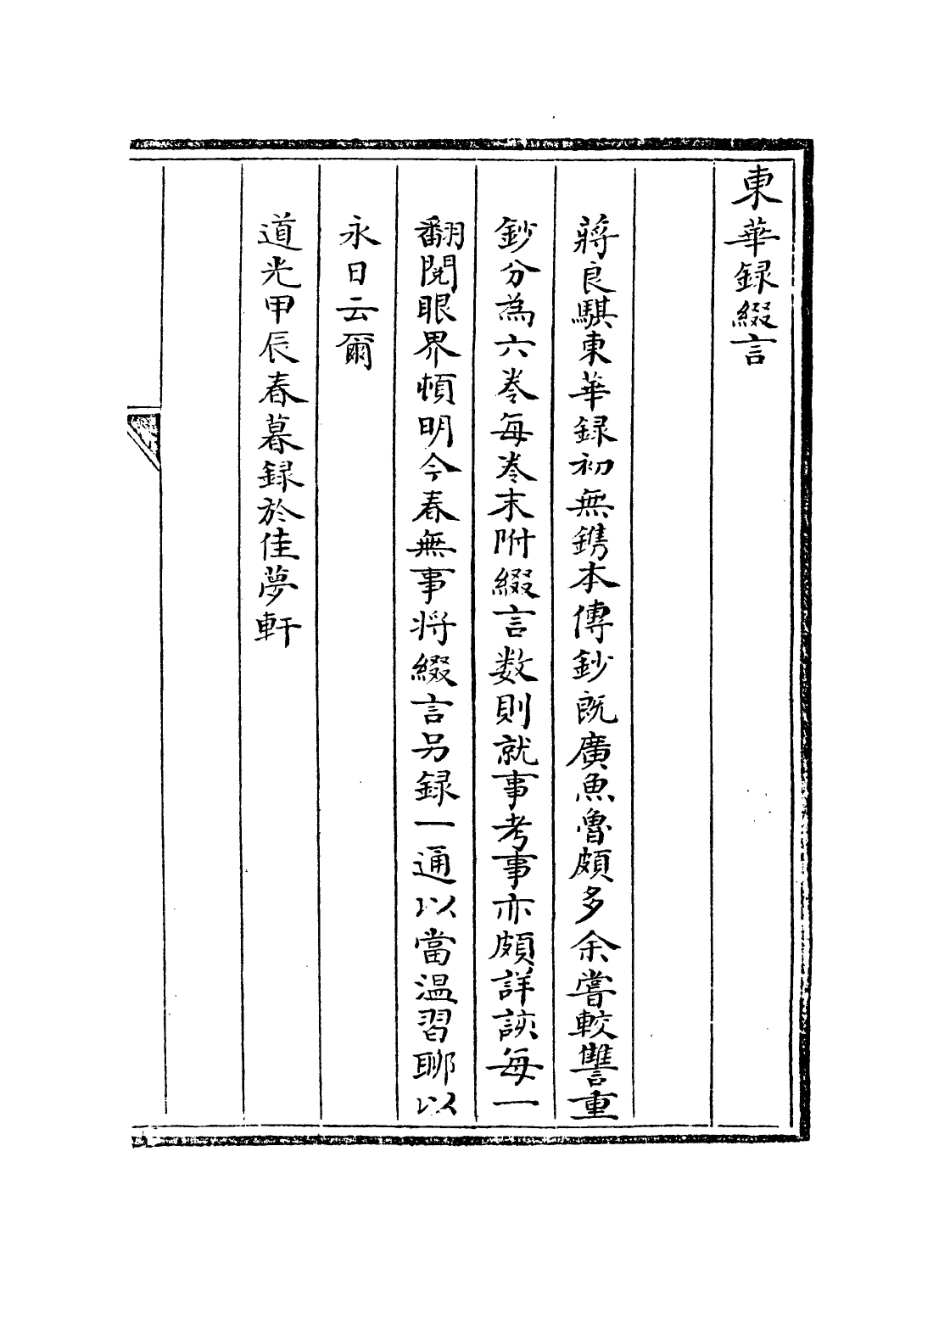 東華録綴言
蔣良騏東華録初無鐫本傳鈔既廣魚魯頗多余嘗較讐重
鈔分為六卷每卷末附綴言数則就事考事亦頗詳該每一
翻閱眼界頓明今春無事将綴言另録一通以當温習聊以
永日云爾
道光甲辰春暮録於佳夢軒